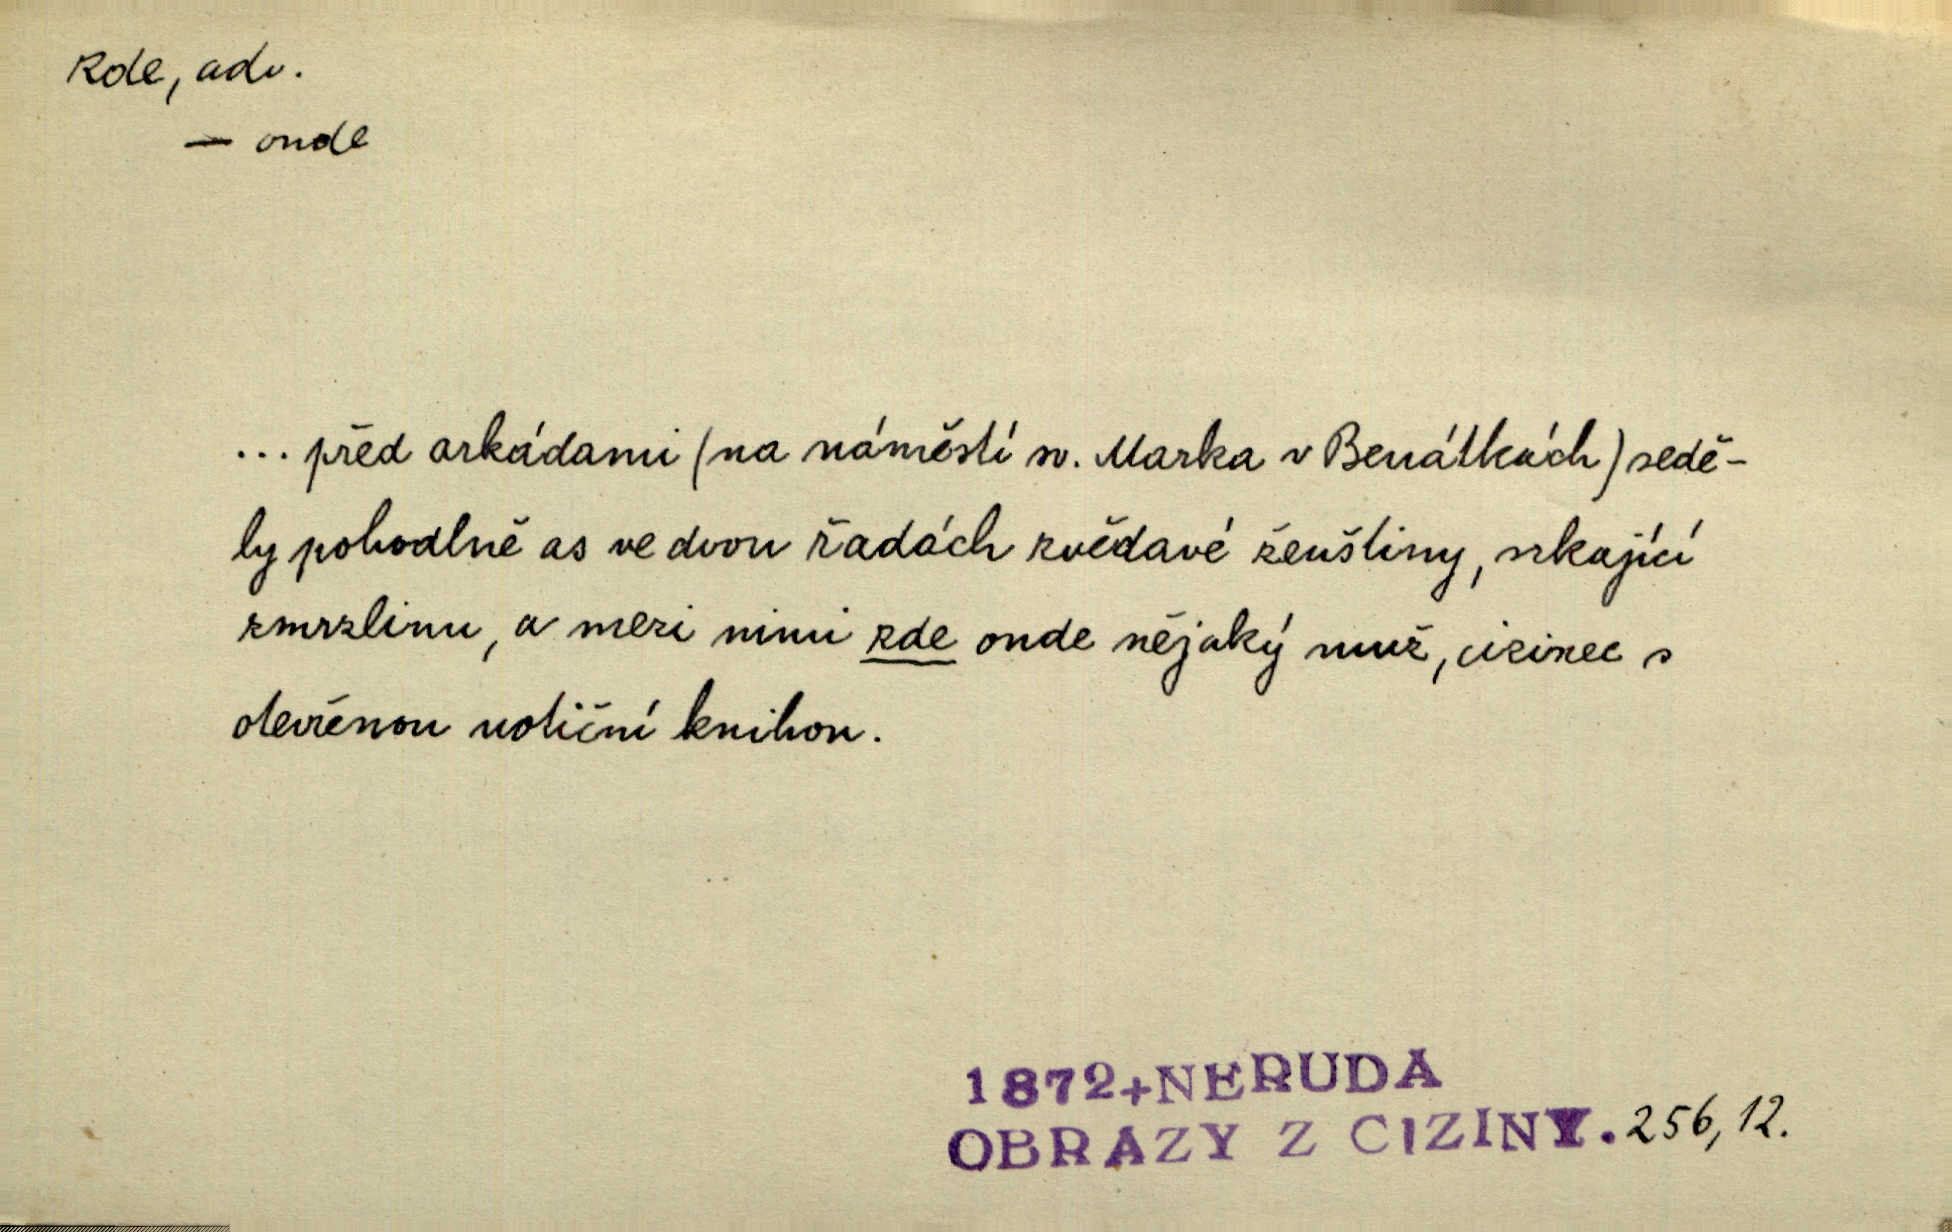 zde, adv.
— onde
... před arkádami (na náměstí sv. Marka v Benátkách) sedě-
ly pohodlně as ve dvou řadách zvědavé ženštiny, srkající
zmrzlinu, a mezi nimi zde onde nějaký muž, cizinec s
otevřenou notiční knihou.
1872+NERUDA
OBRAZY Z CIZINY. 256, 12.